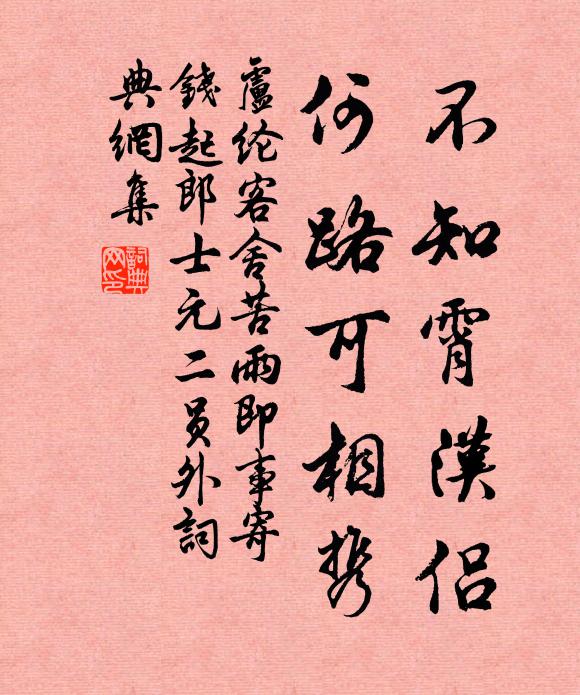 不知霄漢侣
何路可相携
盧纶客舍苦雨即事寄
錢起郎士元二员外詞
典網集
詞典
网印